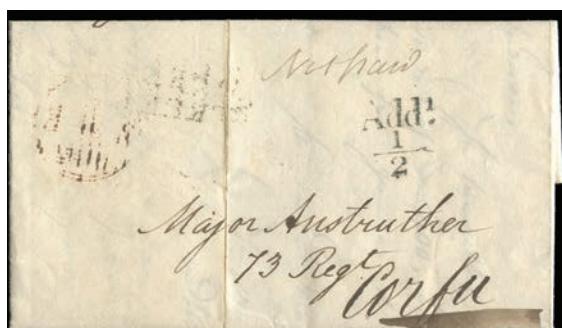 Not paid
Add!
1
2
Major Anstruther
73 Regt
Corfu